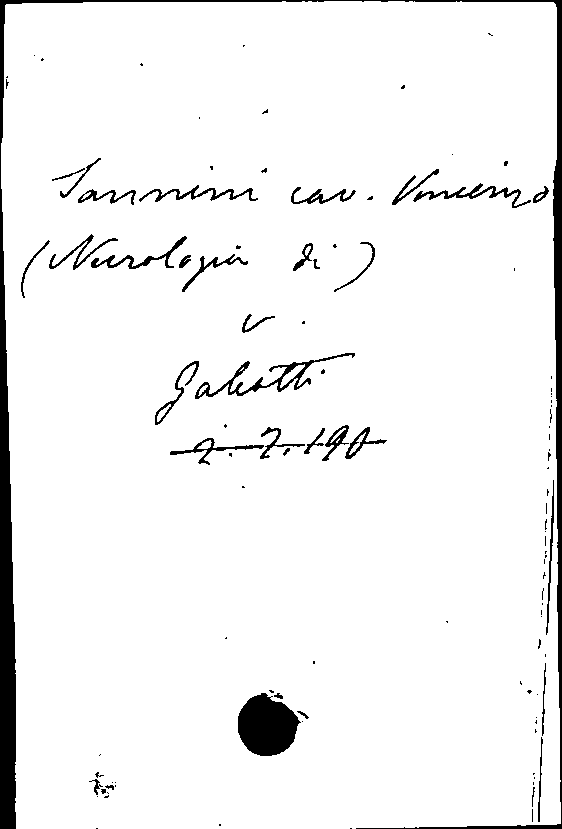 Sannini cav. Vincenzo
(Necrologia di)
v.
Galeotti
2. 7. 190